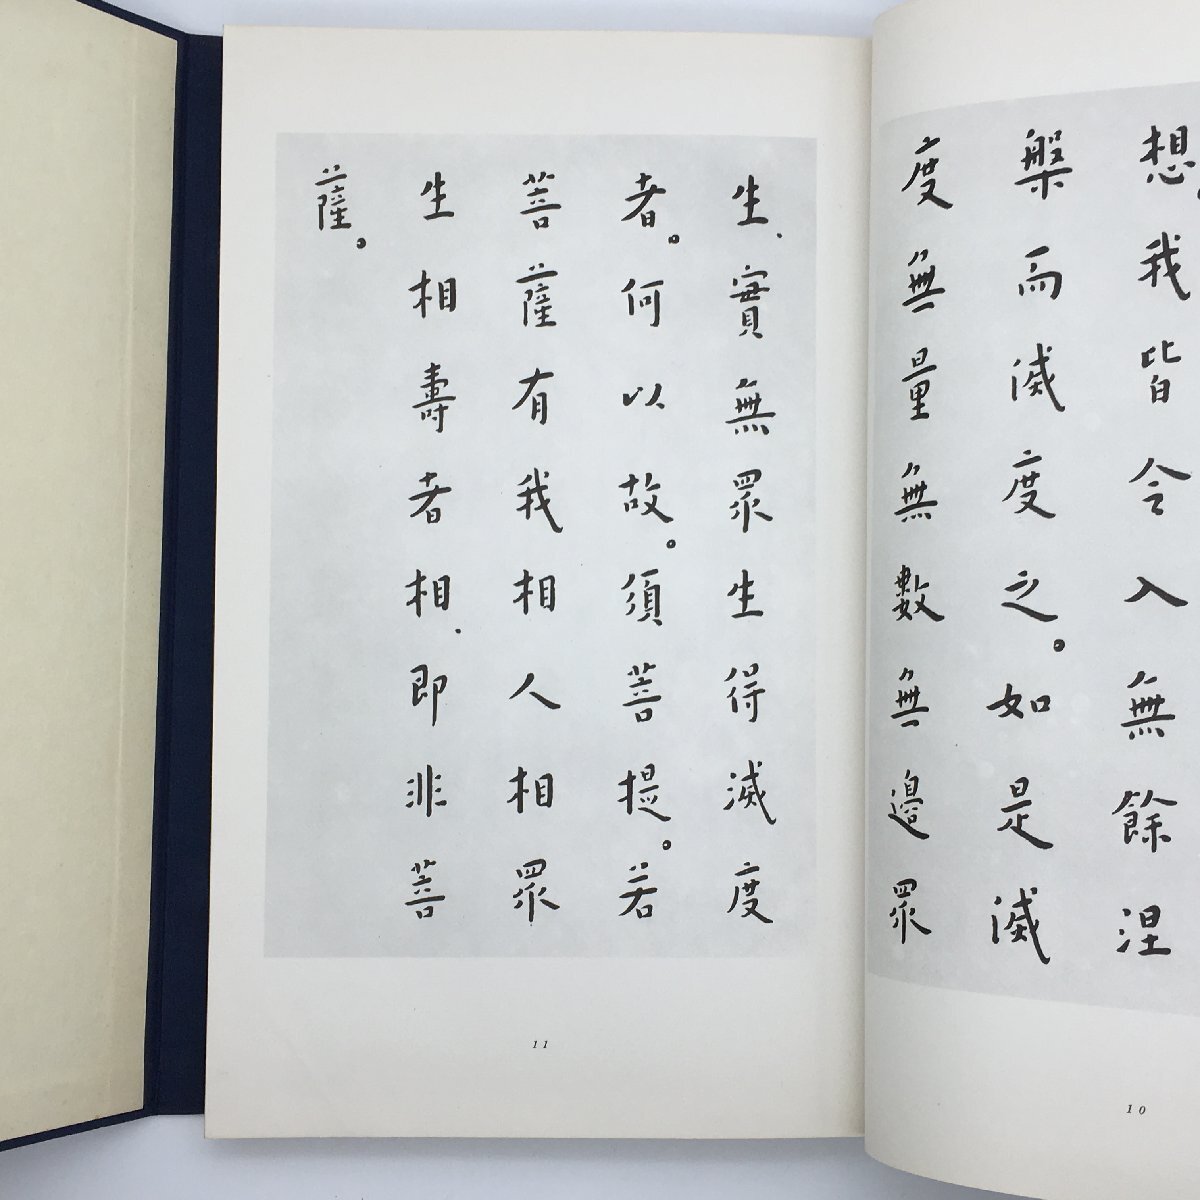 想。我皆令入無餘涅
槃而滅度之。如是滅
度無量無數無邊眾
10
生、實無眾生得滅度
者。何以故。須菩提。若
菩薩有我相人相眾
生相壽者相、即非菩
薩。
11